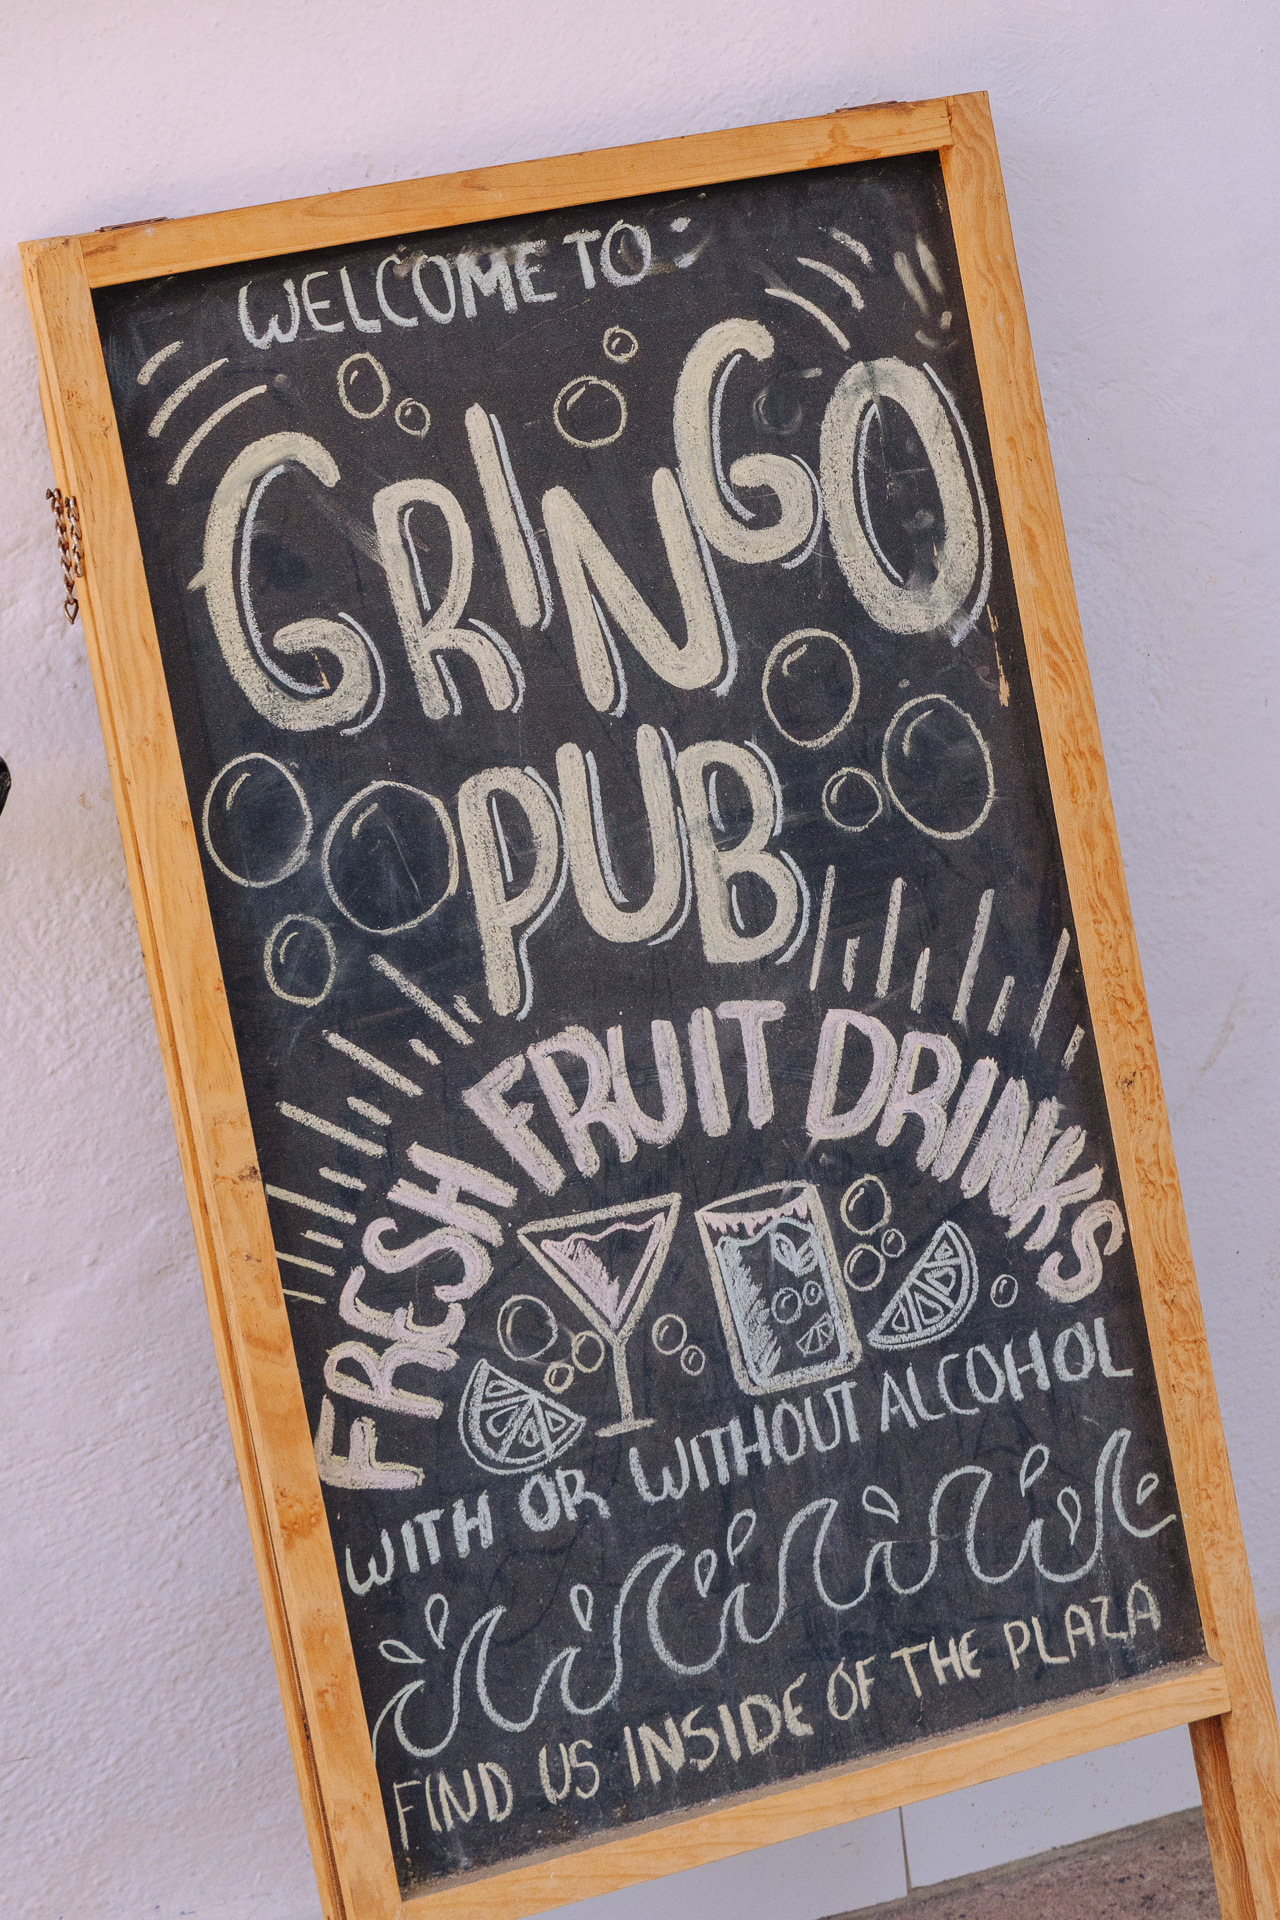 WELCOME TO:
GRINGO
PUB
FRESH FRUIT DRINKS
WITH OR WITHOUT ALCOHOL
FIND US INSIDE OF THE PLAZA